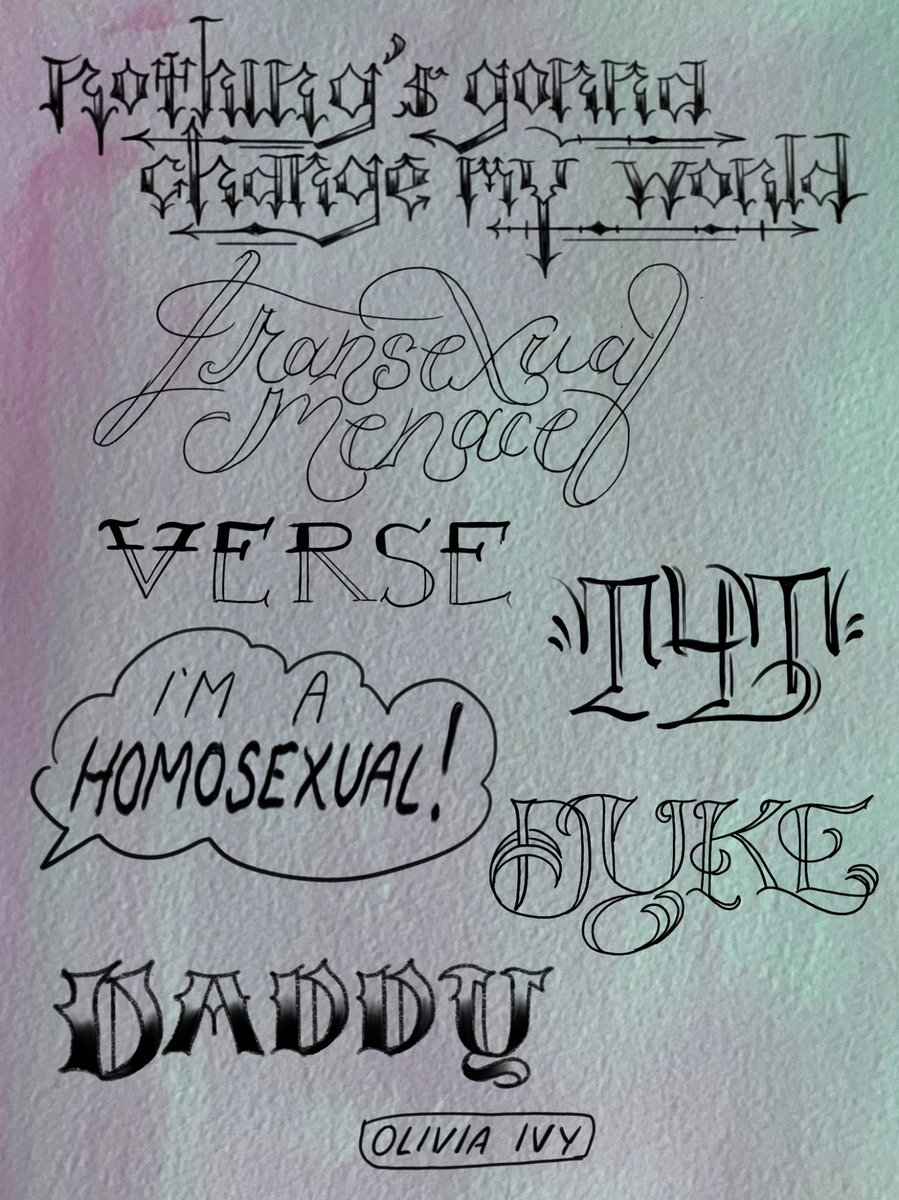 nothing's gonna
change my world
Transexual
Menace
VERSE
T4T
I'M A
HOMOSEXUAL!
DYKE
DADDY
OLIVIA IVY